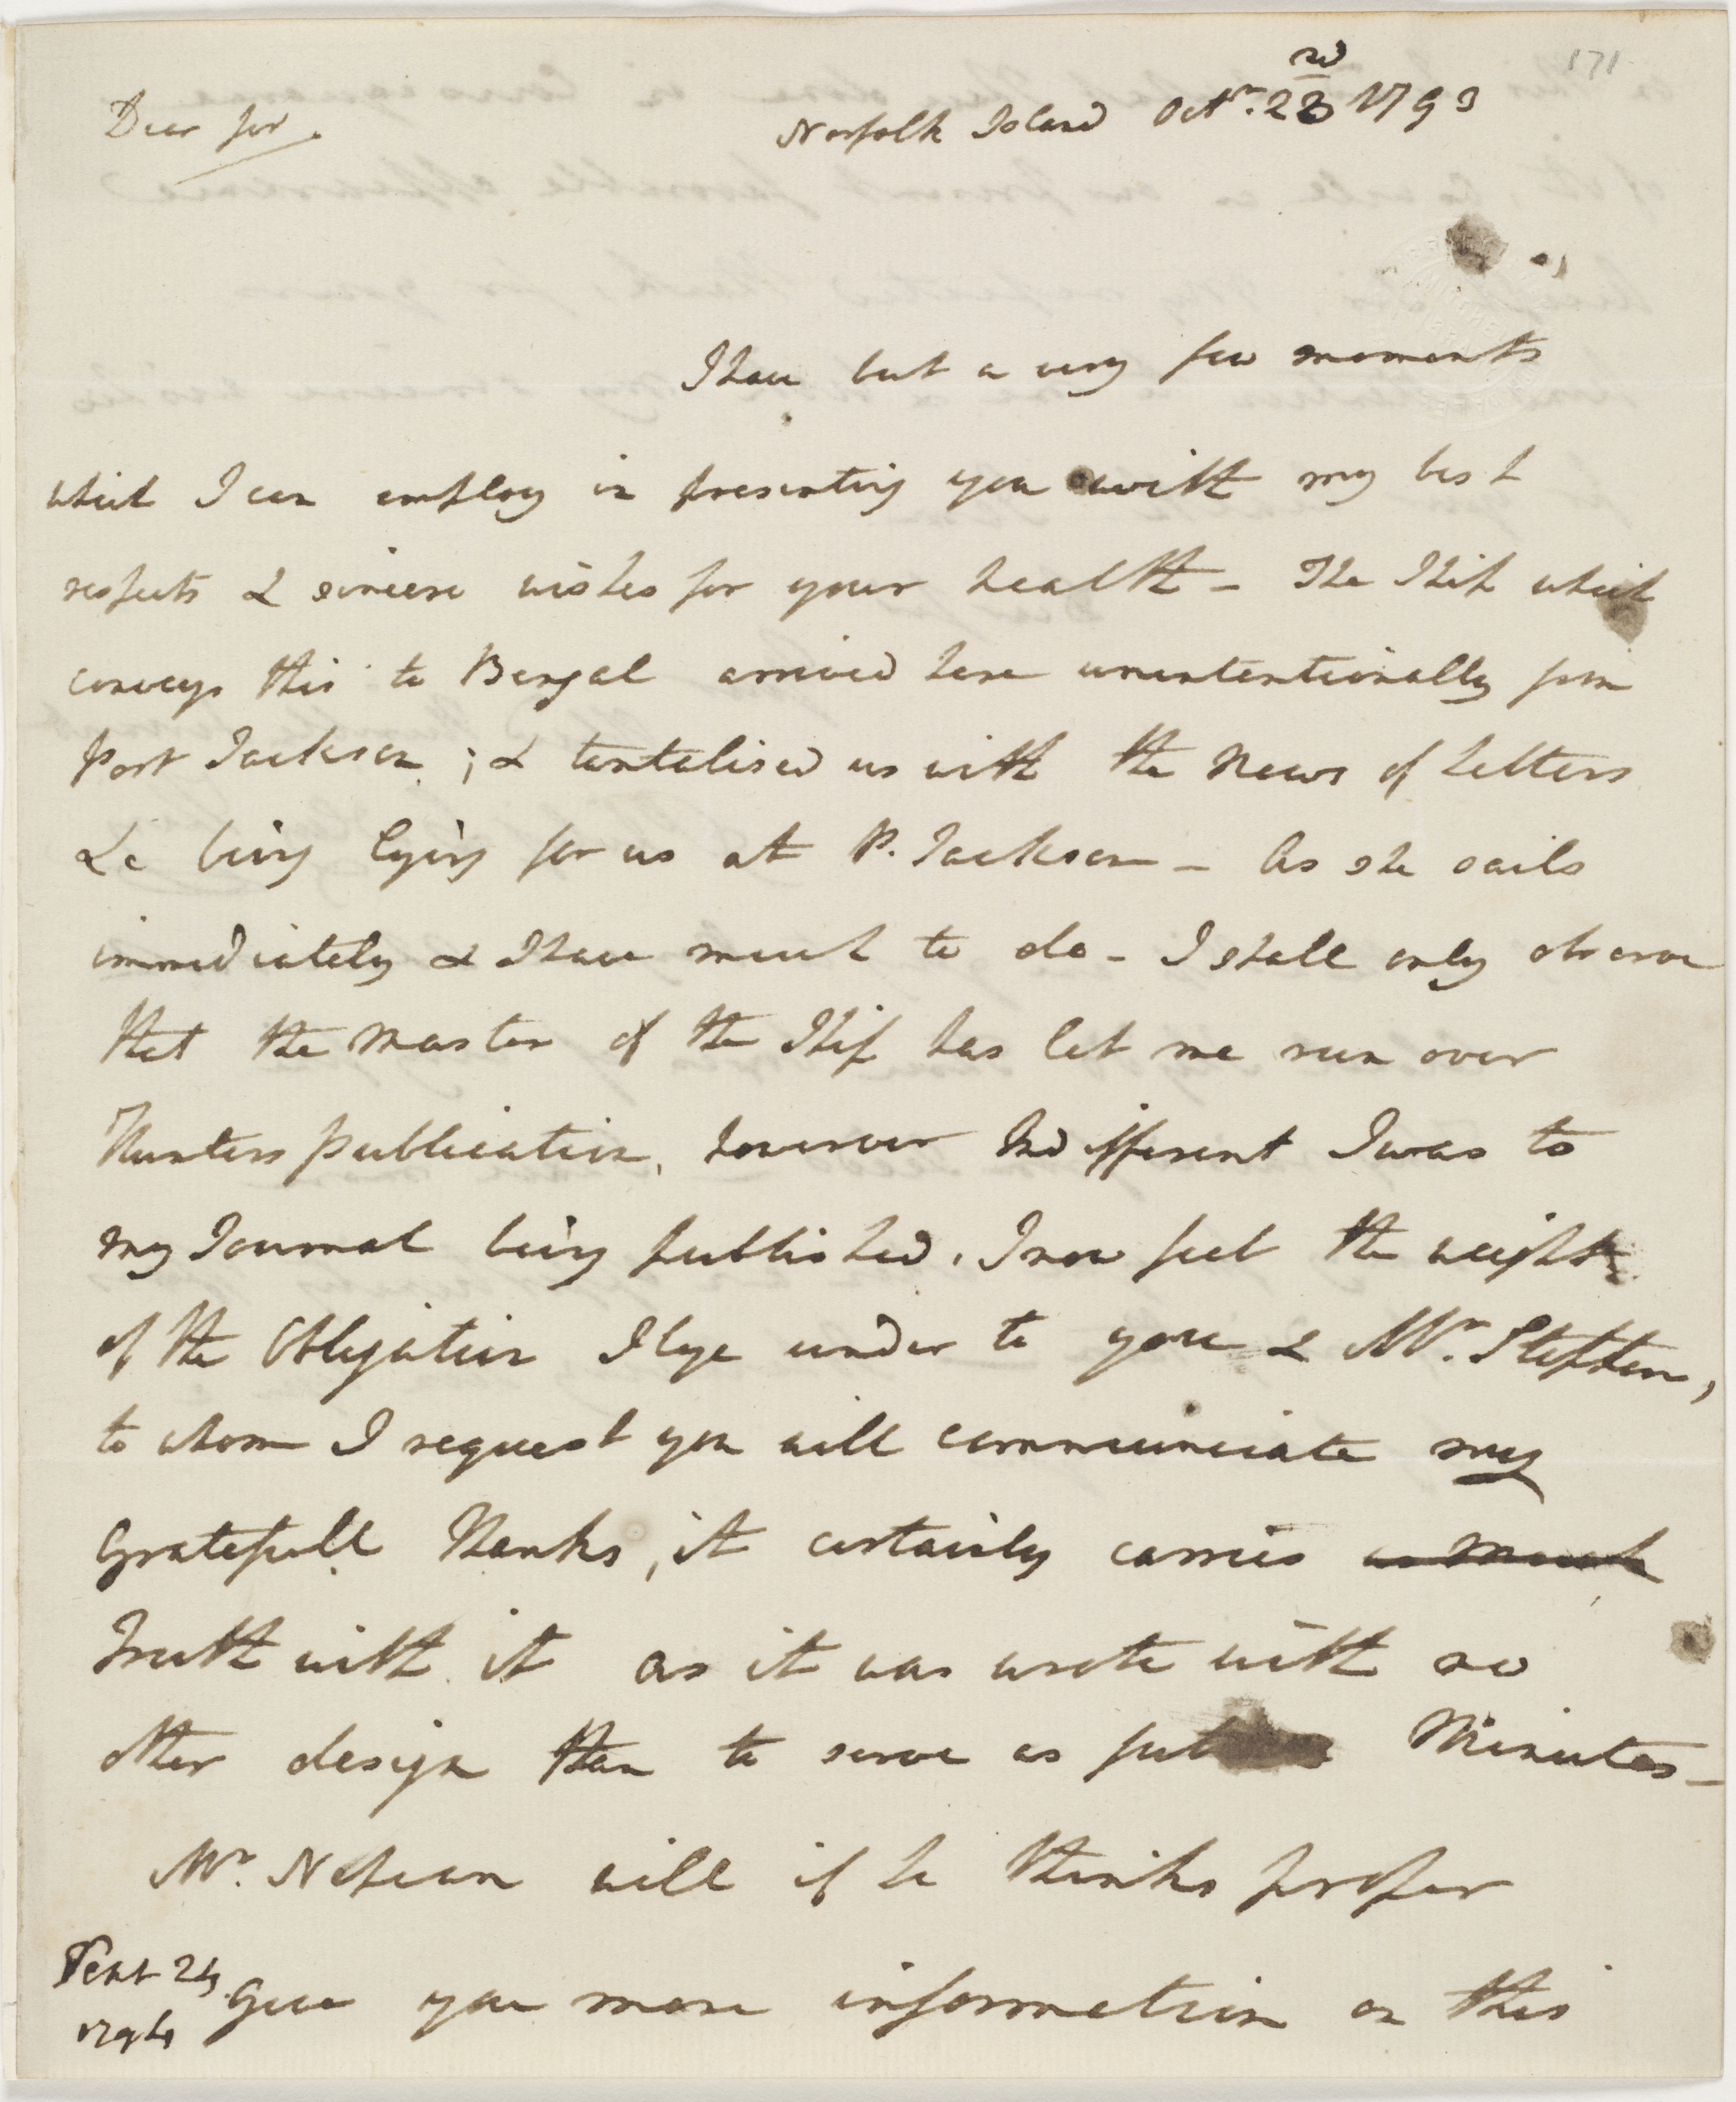 171
Dear Sir. Norfolk Island Octr. 23rd 1793
I have but a very few moments
which I can employ in presenting you with my best
respects & sincere wishes for your health - The Ship which
conveys this to Bengal arrived here unintentionally from
Port Jackson; & tantalised us with the News of Letters
&c being lying for us at P. Jackson - As she sails
immediately & I have much to do - I shall only observe
that the Master of the Ship has let me run over
Hunters publication, however Indifferent I was to
my Journal being published, I now feel the weight
of the Obligation I lye under to you & Mr. Stephen,
to whom I request you will communciate my
Gratefull Thanks, it certainly carries as much
Truth with it as it was wrote with no
other design than to serve as Minutes -
Mr. Nepean will if he thinks proper
Give you more information on this
Sept 24
1794